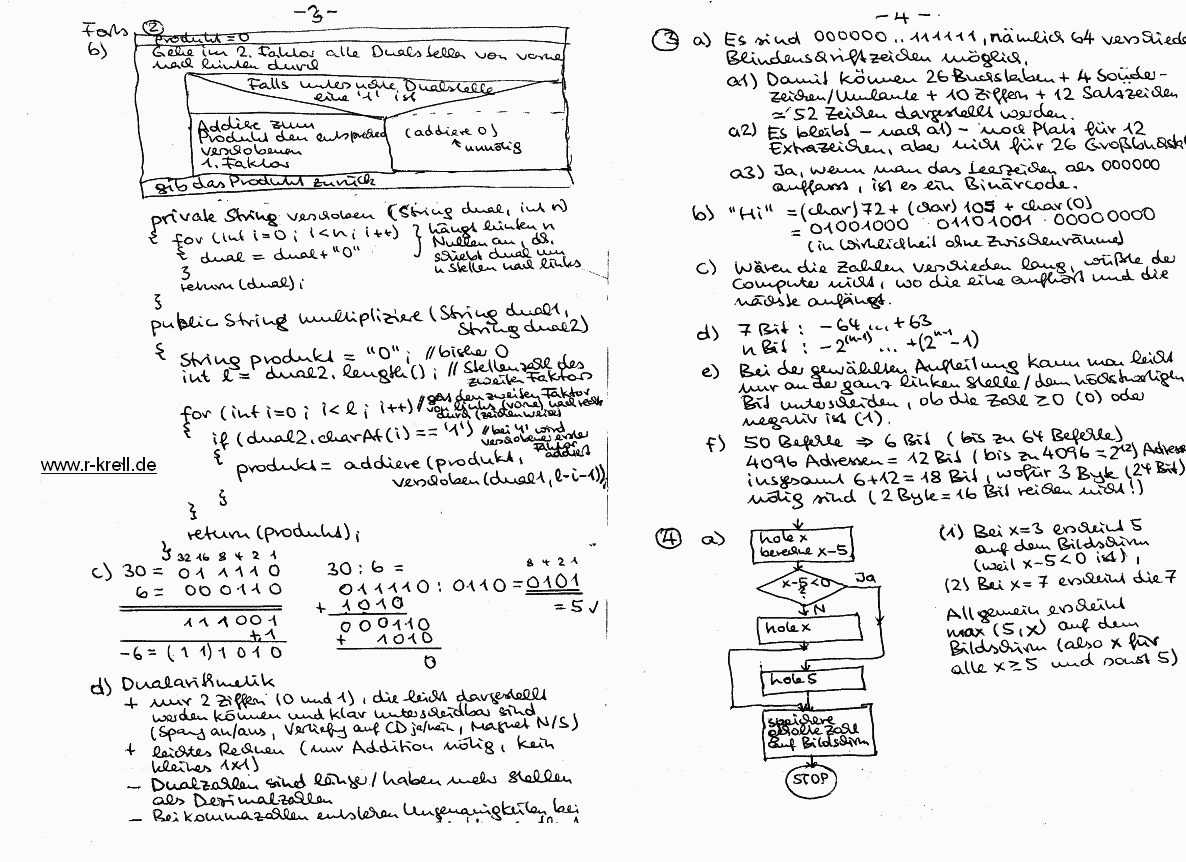 -3-
Forts. ②
b)
produkt=0
Gehe im 2. Faktor alle Dualstellen von vorne
nach hinten durch
Falls untersuchte Dualstelle
eine '1' ist
Addiere zum
Produkt den entsprechend
verschobenen
1. Faktor
(addiere 0)
↖ unnötig
gib das Produkt zurück
private String verschoben (String dual, int n)
{ for (int i=0; i<n; i++) } hängt hinten n
{ dual = dual+"0" } Nullen an, d.h.
} schiebt dual um
n Stellen nach links
return (dual);
}
public String multipliziere (String dual1,
String dual2)
{ String produkt = "0"; // bisher 0
int l = dual2.length(); // Stellenzahl des
zweiten Faktors
for (int i=0; i<l; i++) // den zweiten Faktor
von links (vorne) nach rechts
durch (zeichenweise)
{ if (dual2.charAt(i) == '1') // bei '1' wird
verschobener erster
Faktor
addiert
{ produkt = addiere (produkt,
verschoben (dual1, l-i-1));
}
}
return (produkt);
}
www.r-krell.de
32 16 8 4 2 1
c) 30 = 0 1 1 1 1 0
6 = 0 0 0 1 1 0
1 1 1 0 0 1
+1
-6 = (1 1) 1 0 1 0
30 : 6 =
8 4 2 1
011110 : 0110 = 0101
+ 1010
= 5 ✓
000110
+ 1010
0
d) Dualarithmetik
+ nur 2 Ziffern (0 und 1), die leicht dargestellt
werden können und klar unterscheidbar sind
(Spang an/aus, Vertiefg auf CD ja/nein, Magnet N/S)
+ leichtes Rechnen (nur Addition nötig, kein
kleines 1x1)
– Dualzahlen sind länger/haben mehr Stellen
als Dezimalzahlen
– Bei Kommazahlen entstehen Ungenauigkeiten bei
-4-
③ a) Es sind 000000..111111, nämlich 64 verschiede
Blindenschriftzeichen möglich.
a1) Damit können 26 Buchstaben + 4 Sonder-
zeichen/Umlaute + 10 Ziffern + 12 Satzzeichen
= 52 Zeichen dargestellt werden.
a2) Es bleibt – nach a1) – noch Platz für 12
Extrazeichen, aber nicht für 26 Großbuchst
a3) Ja, wenn man das Leerzeichen als 000000
auffasst, ist es ein Binärcode.
b) "Hi" = (char)72 + (char)105 + char(0)
= 01001000 01101001 00000000
(in Wirklichkeit ohne Zwischenräume)
c) Wären die Zahlen verschieden lang, wüßte der
Computer nicht, wo die eine aufhört und die
nächste anfängt.
d) 7 Bit : -64 ... +63
n Bit : -2^(n-1) ... +(2^n-1 -1)
e) Bei der gewählten Aufteilung kann man leicht
nur an der ganz linken Stelle/dem höchstwertigen
Bit unterscheiden, ob die Zahl ≥0 (0) oder
negativ ist (1).
f) 50 Befehle ⇒ 6 Bit (bis zu 64 Befehle)
4096 Adressen = 12 Bit (bis zu 4096 = 2^12) Adress
insgesamt 6+12 = 18 Bit, wofür 3 Byte (24 Bit)
nötig sind (2 Byte = 16 Bit reichen nicht!)
④ a)
hole x
berechne x-5
x-5<0
?
Ja
N
hole x
hole 5
speichere
geholte Zahl
auf Bildschirm
STOP
(1) Bei x=3 erscheint 5
auf dem Bildschirm
(weil x-5<0 ist),
(2) Bei x=7 erscheint die 7
Allgemein erscheint
max (5,x) auf dem
Bildschirm (also x für
alle x≥5 und sonst 5)